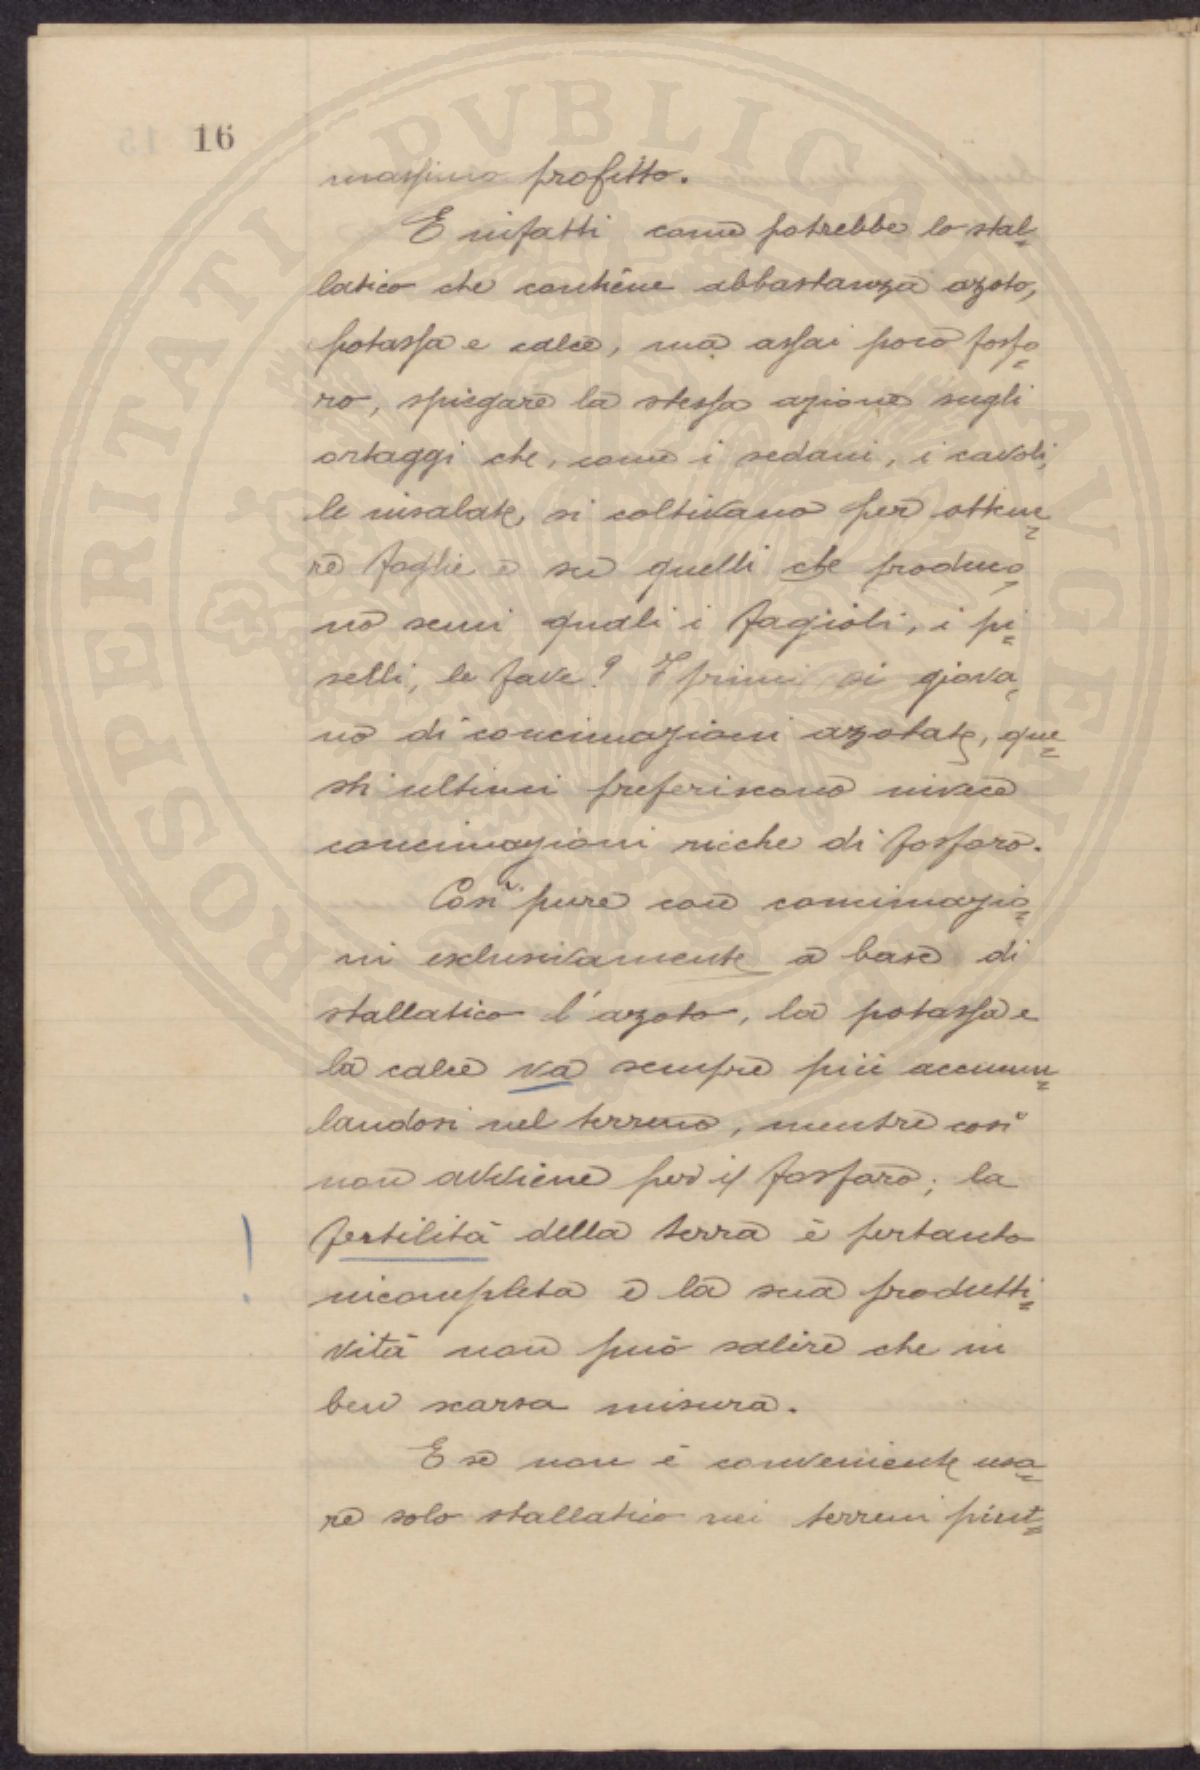 16
massimo profitto.
E infatti come potrebbe lo stal=
latico che contiene abbastanza azoto,
potassa e calce, ma assai poco fosfo=
ro, spiegare la stessa azione sugli
ortaggi che, come i sedani, i cavoli,
le insalate, si coltivano per ottene=
re foglie e su quelli che produco=
no semi quali i fagioli, i pi=
selli, le fave? I primi si giova=
no di concimazioni azotate, que=
sti ultimi preferiscono invece
concimazioni ricche di fosforo.
Così pure con concimazio=
ni esclusivamente a base di
stallatico l'azoto, la potassa e
la calce va sempre più accumu=
landosi nel terreno, mentre così
non avviene per il fosforo; la
! fertilità della terra è pertanto
incompleta e la sua produtti=
vità non può salire che in
ben scarsa misura.
E se non è conveniente usa=
re solo stallatico nei terreni piut=
PROSPERITATI PVBLICAE AVGENDAE